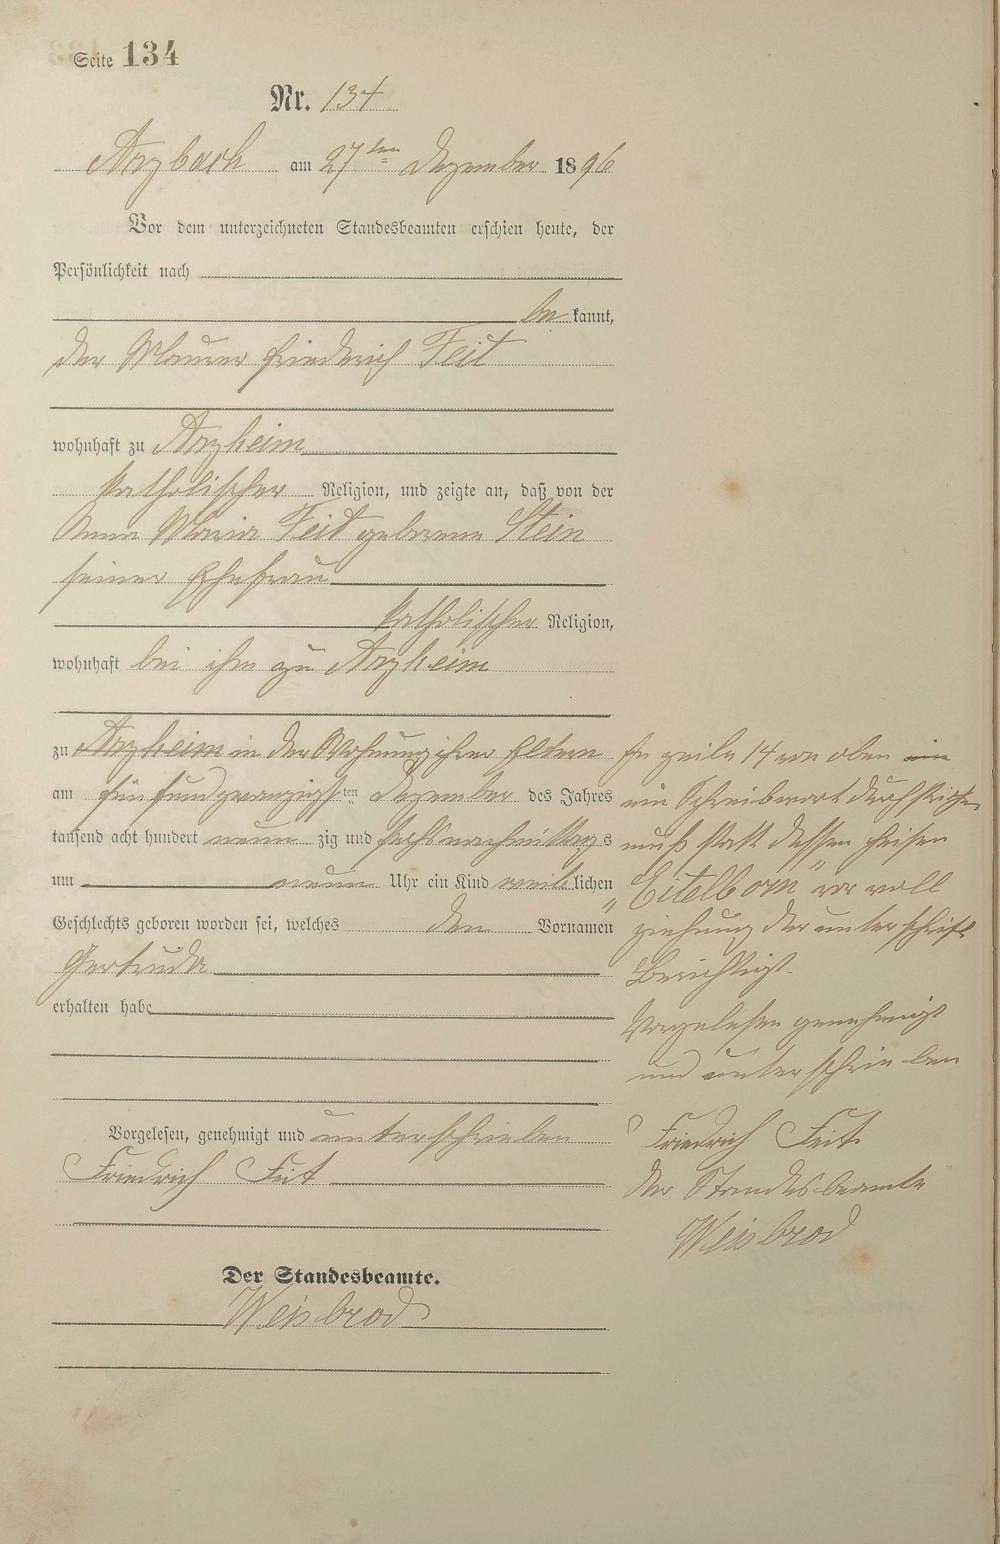 Seite 134
Nr. 134
Arzbach am 27ten Dezember 1896
Vor dem unterzeichneten Standesbeamten erschien heute, der
Persönlichkeit nach
be kannt,
der Maurer Friedrich Feit
wohnhaft zu Arzheim
katholischer Religion, und zeigte an, daß von der
Anna Maria Feit geborene Stein
seiner Ehefrau
katholischer Religion,
wohnhaft bei ihm zu Arzheim
zu Arzheim in der Wohnung ihrer Eltern
am fünfundzwanzigsten Dezember des Jahres
tausend acht hundert neun zig und sechs nachmittags
um neun Uhr ein Kind weib lichen
Geschlechts geboren worden sei, welches den Vornamen
Gertruda
erhalten habe
Vorgelesen, genehmigt und unterschrieben
Friedrich Feit
Der Standesbeamte.
Weisbrod
In zeile 14 von oben ein
ein Schreibwort durchstrichen
muß statt dessen heisen
"Eitelborn" vor voll
ziehung der unterschrift
Berichtigt.
Vorgelesen genehmigt
und unterschrieben
Friedrich Feit
der Standesbeamte
Weisbrod